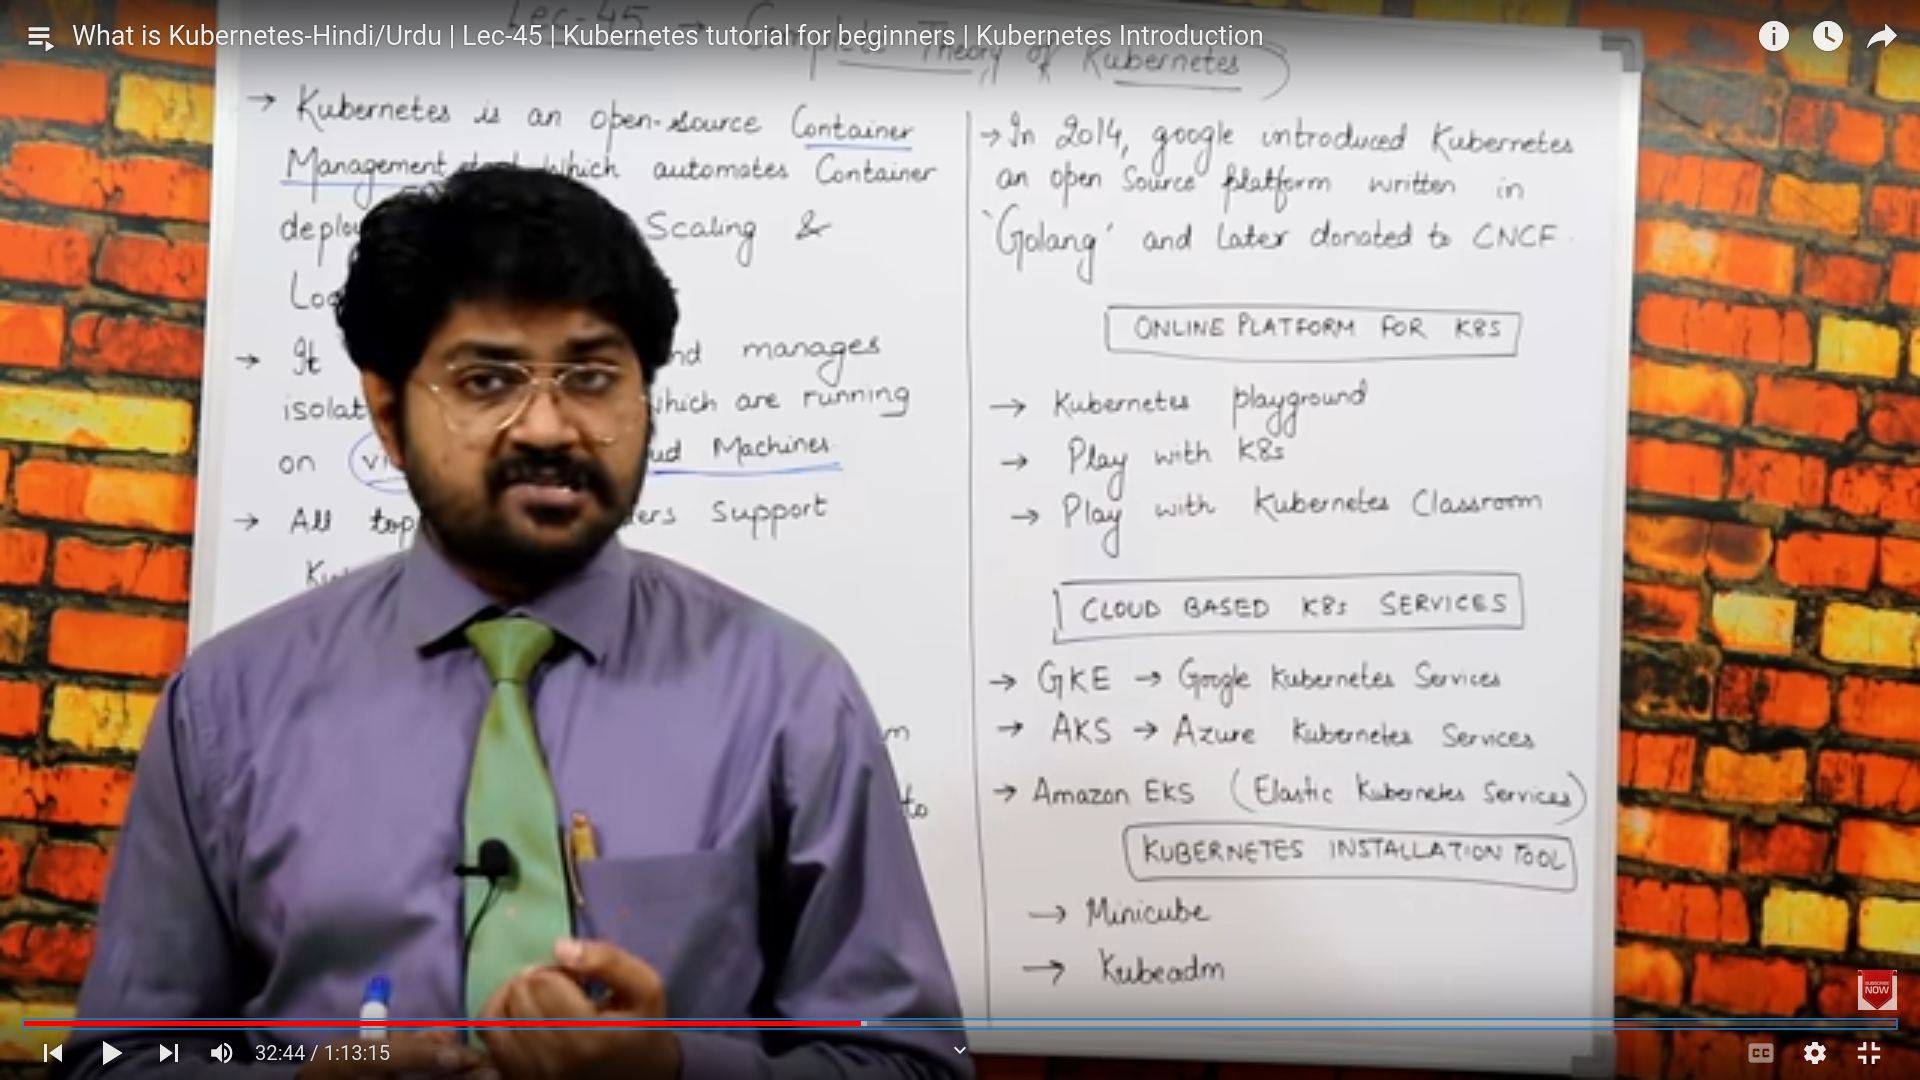 What is Kubernetes-Hindi/Urdu | Lec-45 | Kubernetes tutorial for beginners | Kubernetes Introduction
Lec-45 → Complete Theory of Kubernetes
→ Kubernetes is an open-source Container
Management which automates Container
Scaling &
→ It manages
which are running
on Machines
→ All top support
→ In 2014, google introduced Kubernetes
an open Source platform written in
'Golang' and later donated to CNCF.
ONLINE PLATFORM FOR K8S
→ Kubernetes playground
→ Play with K8s
→ Play with Kubernetes Classroom
CLOUD BASED K8s SERVICES
→ GKE → Google Kubernetes Services
→ AKS → Azure Kubernetes Services
→ Amazon EKS (Elastic Kubernetes Services)
KUBERNETES INSTALLATION TOOL
→ Minicube
→ Kubeadm
to
SUBSCRIBE
NOW
32:44 / 1:13:15
CC